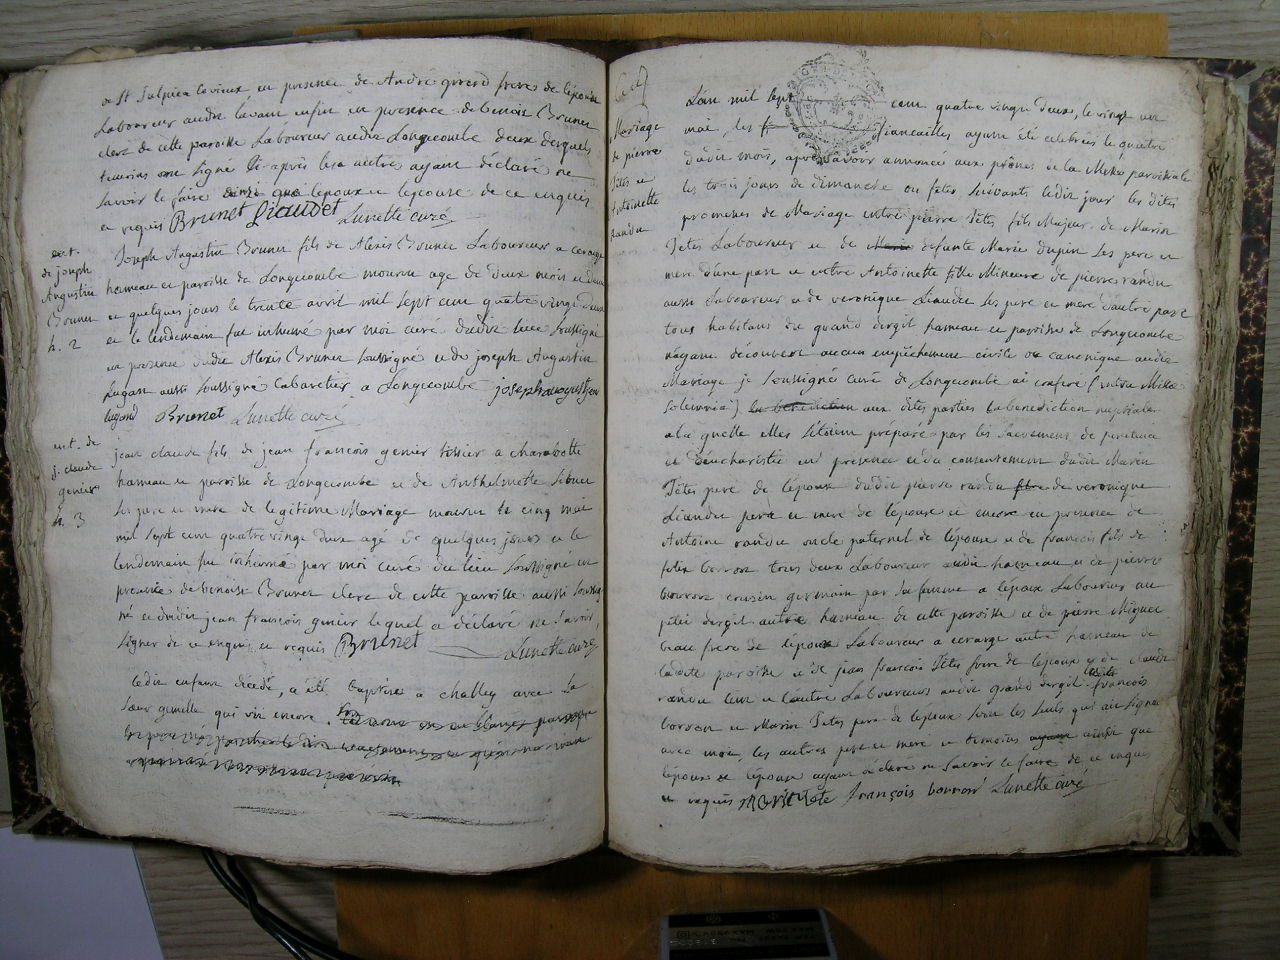 de St Sulpice le vieux en presence de André girerd frere de l'épouse
Laboureur audit lavant enfin en presence de benoit Brunet
clerc de cette paroisse Laboureur audit Longecombe deux desquels
temoins on signé ci-après les autres ayant déclaré ne
savoir le faire ainsi que lepoux et lepouse de ce enquis
et requis Brunet Liaudet Lunette curé
ent.
de joseph
Angustin
Brunet
h. 2
Joseph Angustin Brunet fils de Alexis Brunet Laboureur a cerarge
hameau et paroisse de Longecombe mourut age de deux mois et demi
et quelques jours le trente avril mil sept cent quatre vingt deux
et le lendemain fut inhumé par moi curé dudit lieu soussigné
en presence dudit Alexis Brunet soussigné et de joseph Angustin
Lugand aussi soussigné Cabaretier a Longecombe joseph augustin
lugand Brunet Lunette curé
ent. de
j. claude
genier
h. 3
jean claude fils de jean françois genier tissier a charabotte
hameau et paroisse de Longecombe et de Anthelmette
ses pere et mere de legitime Mariage mourut le cinq mai
mil sept cent quatre vingt deux agé de quelques jours et le
lendemain fut inhumé par moi curé du lieu soussigné en
presence de benoit Brunet clerc de cette paroisse aussi soussig
né et dudit jean françois genier lequel a déclaré ne savoir
signer de ce enquis et requis Brunet Lunette curé
ledit enfant décédé, a été baptisé a challey avec sa
sœur gemelle qui vit encore.
Mariage
de pierre
Têtes et
Antoinette
randu
L'an mil sept cent quatre vingt deux, le vingt un
mai, les fiancailles ayant été celebrées le quatre
dudit mois, après avoir annoncé aux prônes de la Messe paroissiale
les trois jours de dimanche ou fêtes suivants ledit jour les dites
promesses de Mariage entre pierre Têtes fils Majeur de Marin
Têtes Laboureur et de defunte Marie dupin ses pere et
mere d'une part et entre Antoinette fille Mineure de pierre randu
aussi Laboureur et de veronique Liaudet ses pere et mere d'autre part
tous habitans du grand dergit hameau et paroisse de Longecombe
n'ayant découvert aucun empêchement civile ou canonique audit
Mariage je soussigné curé de Longecombe ai conferé (intra Missæ
solemnia) la benediction aux dites parties la benediction nuptiale
a la quelle elles s'étoient préparé par les sacremens de penitence
et d'eucharistie en presence et du consentement dudit Marin
Têtes pere de l'époux dudit pierre randu de veronique
Liaudet pere et mere de l'epouse et encore en presence de
Antoine randu oncle paternel de l'épouse et de francois fils de
borron tous deux Laboureur audit hameau et de pierre
borron cousin germain par sa femme a l'époux Laboureur au
petit dergit autre hameau de cette paroisse et de pierre Miguet
beau frere de l'époux Laboureur a cerarge autre hameau de
ladite paroisse et de jean francois Têtes frere de l'époux et de claude
randu l'un et l'autre Laboureurs audit grand dergit lesdits francois
borron et Marin Tetes pere de l'époux sont les seuls qui aient signé
avec moi, les autres pere et mere et temoins ainsi que
l'époux et l'épouse ayant déclaré ne savoir le faire de ce enquis
et requis marin tete françois borron Lunette curé